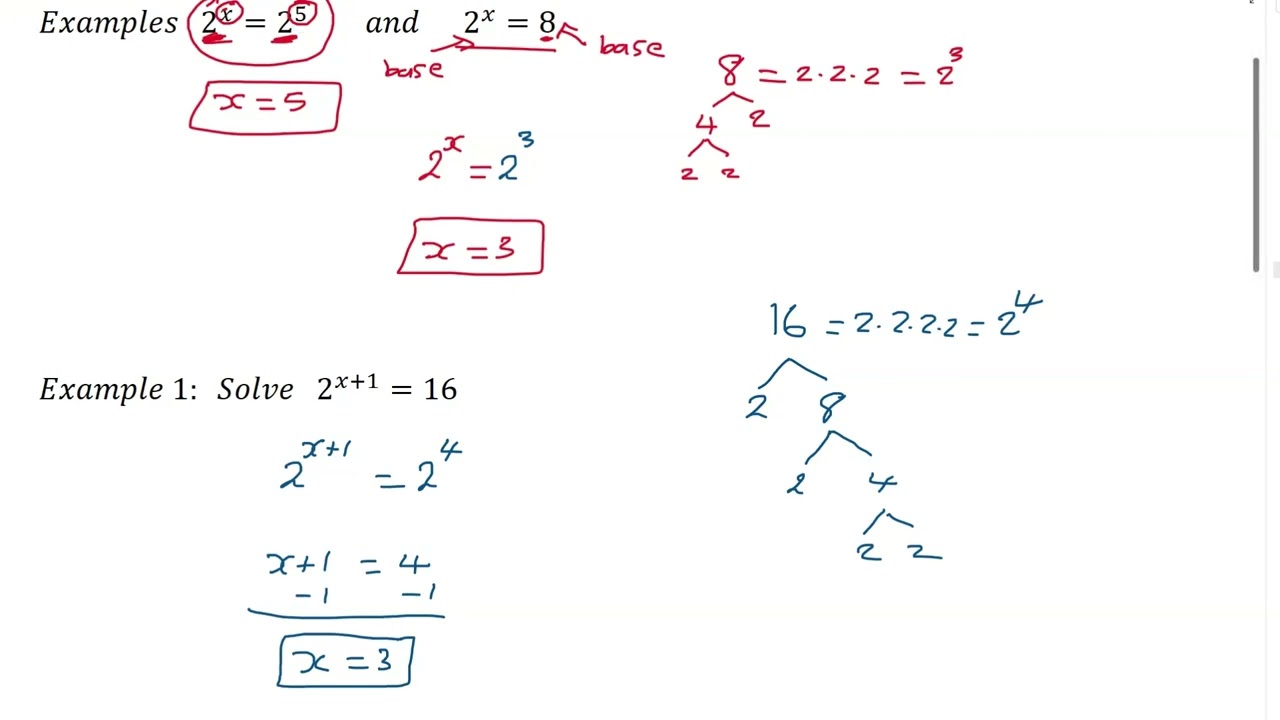 Examples 2^x = 2^5 and 2^x = 8
base
base
x = 5
8 = 2·2·2 = 2^3
4 2
2 2
2^x = 2^3
x = 3
16 = 2·2·2·2 = 2^4
2 8
2 4
2 2
Example 1: Solve 2^{x+1} = 16
2^{x+1} = 2^4
x+1 = 4
-1 -1
x = 3